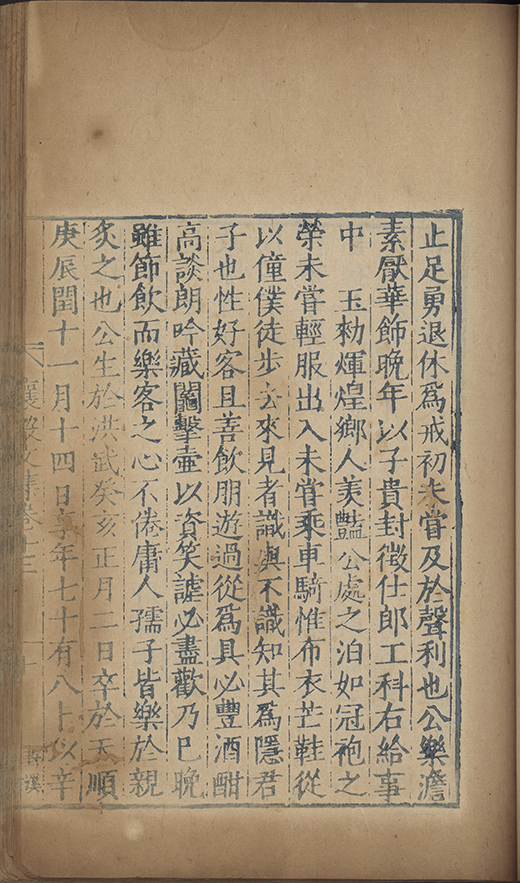 止足勇退休爲戒初未嘗及於聲利也公樂澹
素厭華飾晚年以子貴封徵仕郎工科右給事
中　玉勑煇煌鄉人羙豔公處之泊如冠袍之
榮未嘗輕服出入未嘗乘車騎惟布衣芒鞋從
以僮僕徒步去來見者識與不識知其爲隱君
子也性好客且善飲朋遊過從爲具必豐酒酣
高談朗吟藏鬮擊壷以資笑謔必盡歡乃已晚
雖節飲而樂客之心不倦庸人孺子皆樂於親
炙之也公生於洪武癸亥正月二日卒於天順
庚辰閏十一月十四日享年七十有八卜以辛
襄毅文集卷十三